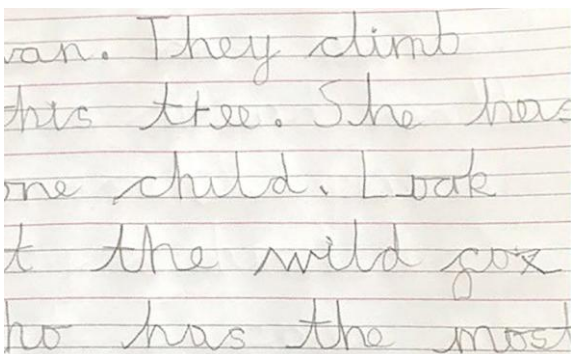 van. They climb
his tree. She has
one child. Look
t the wild fox
ho has the most